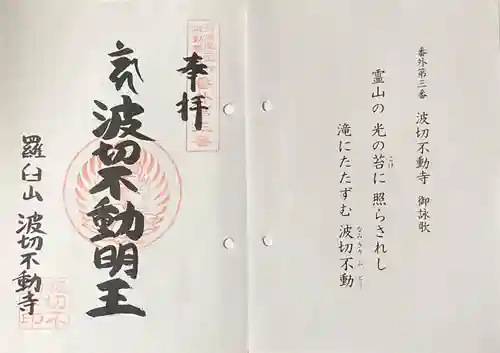 番外第三番 波切不動寺 御詠歌
霊山の 光の苔に 照らされし
こけ
滝にたたずむ 波切不動
なみきりふどう
奉拝
波切不動明王
羅臼山 波切不動寺